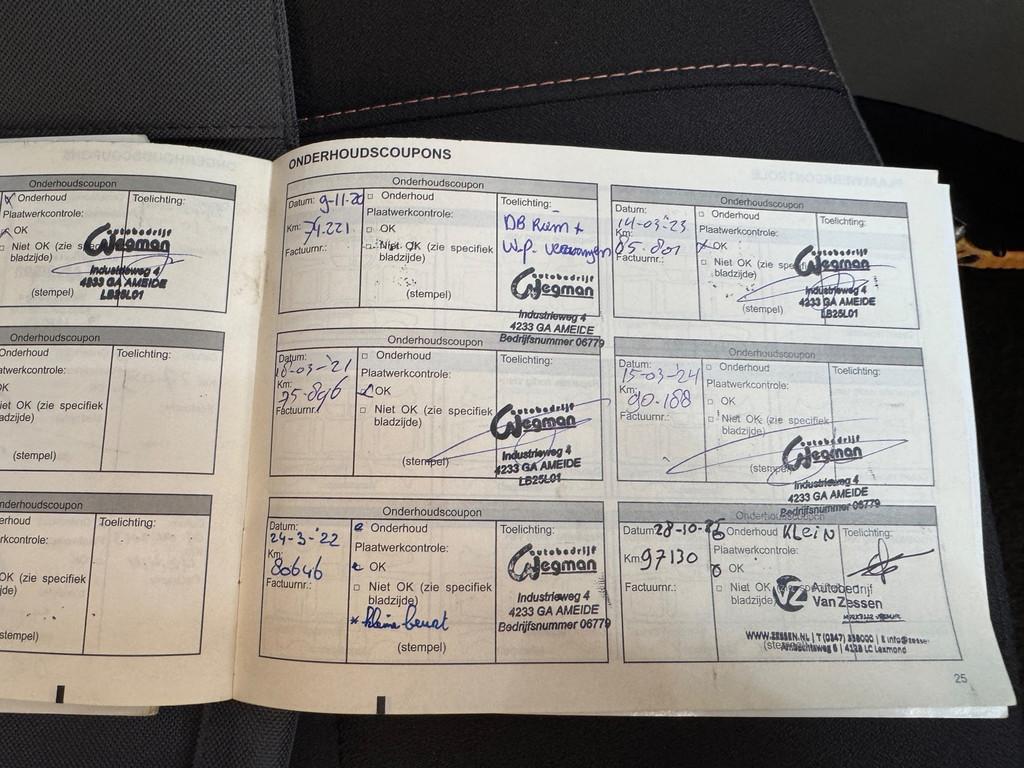 ONDERHOUDSCOUPONS
Onderhoudscoupon
Onderhoud
Plaatwerkcontrole:
OK
Niet OK (zie
bladzijde)
Toelichting:
autobedrijf
Wegman
Industrieweg 4
4233 GA AMEIDE
LB25L01
(stempel)
Onderhoudscoupon
Onderhoud
Plaatwerkcontrole:
OK
Niet OK (zie specifiek
bladzijde)
Toelichting:
(stempel)
Onderhoudscoupon
Onderhoud
Plaatwerkcontrole:
OK
OK (zie specifiek
Toelichting:
(stempel)
Onderhoudscoupon
Datum: 9-11-20
Km: 74.221
Factuurnr.:
Onderhoud
Plaatwerkcontrole:
OK
Niet OK (zie specifiek
bladzijde)
(stempel)
Toelichting:
DB Riem +
W.p. vervangen
autobedrijf
Wegman
Industrieweg 4
4233 GA AMEIDE
Bedrijfsnummer 06779
Onderhoudscoupon
Datum:
18-03-'21
Km:
75.896
Factuurnr.:
Onderhoud
Plaatwerkcontrole:
OK
Niet OK (zie specifiek
bladzijde)
(stempel)
Toelichting:
autobedrijf
Wegman
Industrieweg 4
4233 GA AMEIDE
LB25L01
Onderhoudscoupon
Datum:
24-3-'22
Km:
80646
Factuurnr.:
Onderhoud
Plaatwerkcontrole:
OK
Niet OK (zie specifiek
bladzijde)
* kleine beurt
(stempel)
Toelichting:
autobedrijf
Wegman
Industrieweg 4
4233 GA AMEIDE
Bedrijfsnummer 06779
Onderhoudscoupon
Datum:
14-03-'23
Km:
85.801
Factuurnr.:
Onderhoud
Plaatwerkcontrole:
OK
Niet OK (zie specifiek
bladzijde)
(stempel)
Toelichting:
autobedrijf
Wegman
Industrieweg 4
4233 GA AMEIDE
LB25L01
Onderhoudscoupon
Datum:
15-03-'24
Km:
90.188
Factuurnr.:
Onderhoud
Plaatwerkcontrole:
OK
Niet OK (zie specifiek
bladzijde)
(stempel)
Toelichting:
autobedrijf
Wegman
Industrieweg 4
4233 GA AMEIDE
Bedrijfsnummer 06779
Onderhoudscoupon
Datum: 28-10-
Km 97130
Factuurnr.:
Onderhoud KLEIN
Plaatwerkcontrole:
OK
Niet OK (zie specifiek
bladzijde)
Toelichting:
VZ Autobedrijf
Van Zessen
WWW.ZESSEN.NL | T (0347) 338000 | E info@zessen
Ambachtsweg 6 | 4128 LC Lexmond
25